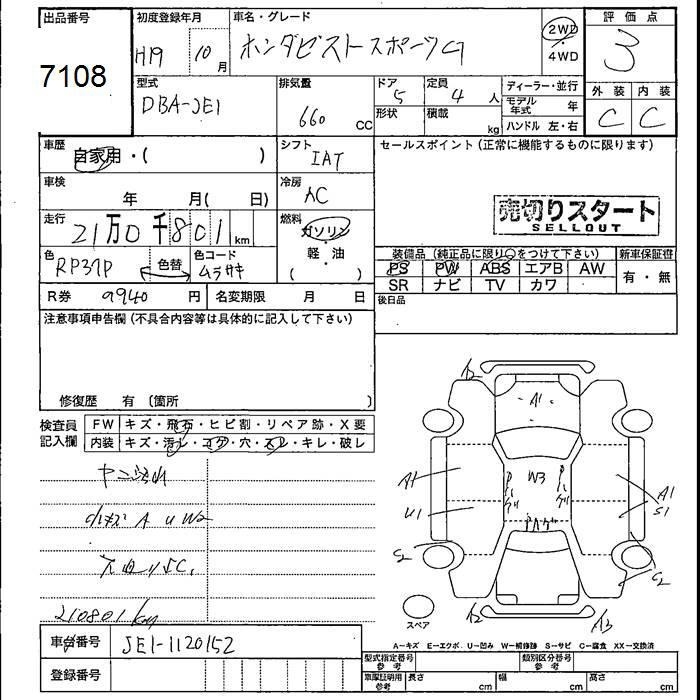 出品番号
7108
初度登録年月
H19 10月
車名・グレード
ホンダゼストスポーツG
2WD
・
4WD
評価点
3
型式
DBA-JE1
排気量
660 CC
ドア
5
形状
定員
4 人
積載
kg
ディーラー・並行
モデル年式 年
ハンドル 左・右
外装 内装
C C
車歴
自家用・( )
シフト
IAT
セールスポイント (正常に機能するものに限ります)
車検
年 月( 日)
冷房
AC
売切りスタート
SELLOUT
走行
21万0千801km
燃料
ガソリン
・
軽・油
( )
色
RP37P
色替
色コード
ムラサキ
装備品 (純正品に限り○をつけて下さい)
新車保証書
PS PW ABS エアB AW
SR ナビ TV カワ
有・無
R券 9940 円
名変期限 月 日
後日品
注意事項申告欄 (不具合内容等は具体的に記入して下さい)
修復歴 有 (箇所 )
検査員
記入欄
FW キズ・飛石・ヒビ割・リペア跡・X要
内装 キズ・汚レ・コゲ・穴・スレ・キレ・破レ
小キズ A U W2
210801km
A2
A1
W3
A1
U1
A1
S1
S2
C2
A2
A3
スペア
A-キズ E-エクボ U-凹み W-補修跡 S-サビ C-腐食 XX-交換済
車台番号 JE1-1120152
登録番号
型式指定番号
参考
類別区分番号
参考
車庫証明用
参考
長さ cm
幅 cm
高さ cm